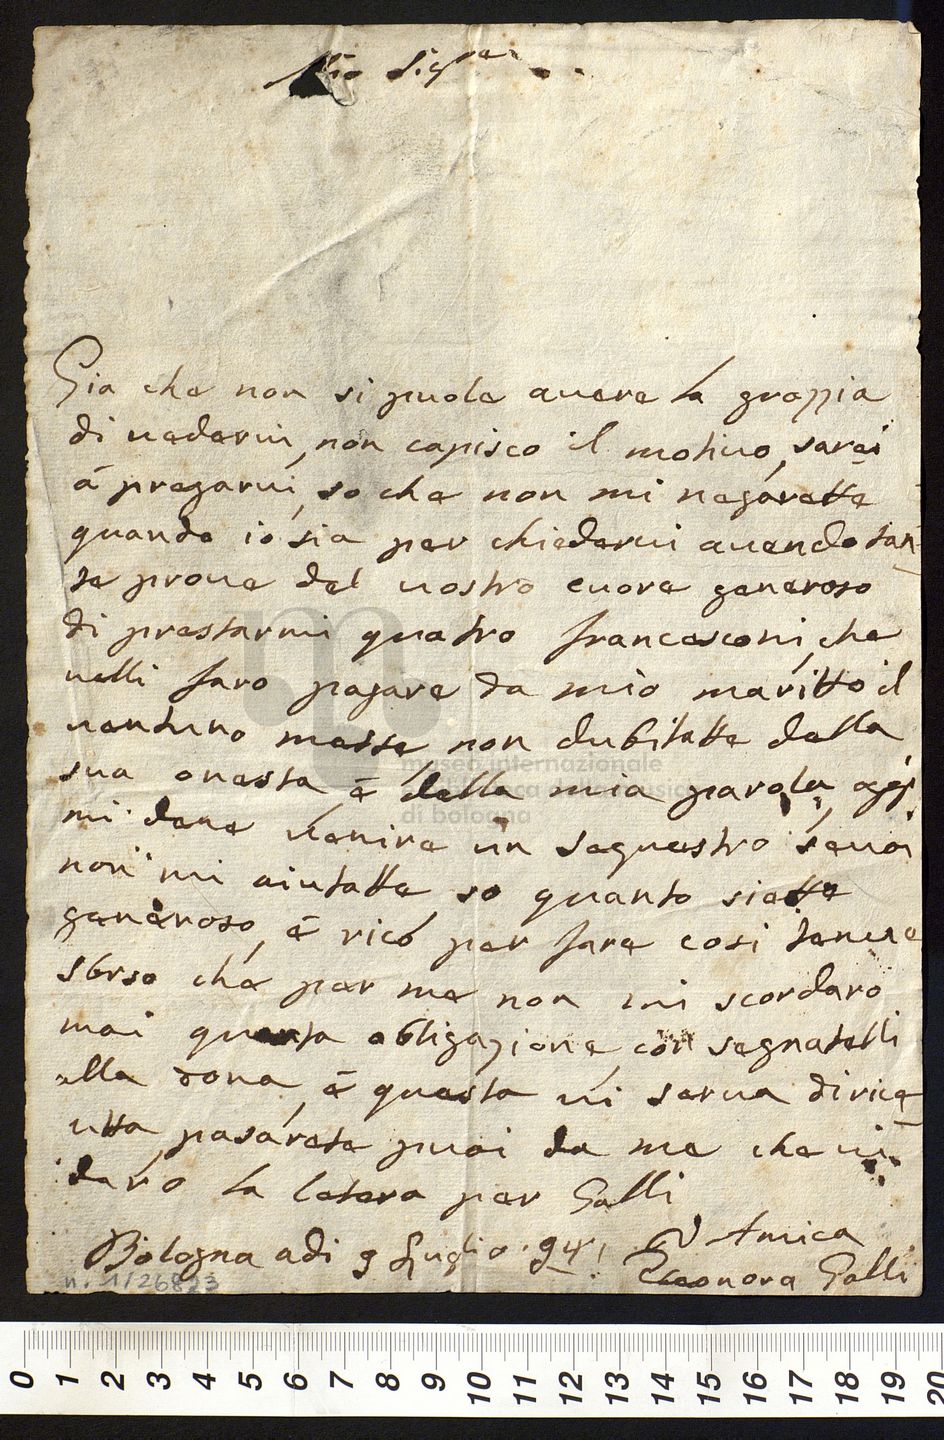 Mio Sig.re
Gia che non si puole avere la grazzia
di vedervi, non capisco il motivo, sarei
á pregarvi, so che non mi negarette
quando io sia per chiedervi avendo tan-
te prove del vostro cuore generoso
di prestarmi quatro francesconi, che
velli faro pagare da mio maritto il
venturo messe non dubitatte della
sua onesta, é della mia parola,
mi deve venire un sequestro se voi
non mi aiutatte so quanto siette
generoso, é rico per fare cosi tenue
sborso che per me non mi scordaro
mai questa obligazione, con segnatelli
alla dona, é questa vi serva di rice-
utta, pasarete puoi da me che vi
daro la letera per Galli
Bologna adi 9 Luglio 94
Amica
Eleonora Galli
n. 1/26823
museo internazionale
e biblioteca della musica
di bologna
0 1 2 3 4 5 6 7 8 9 10 11 12 13 14 15 16 17 18 19 20